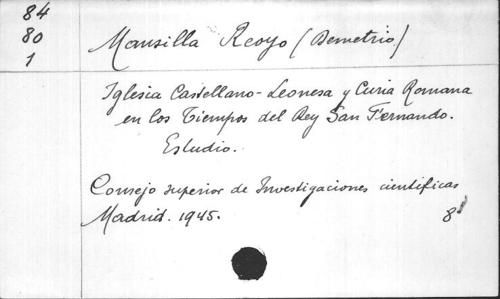 84
80
1
Mansilla Reoyo (Demetrio)
Iglesia Castellano-Leonesa y Curia Romana
en los Tiempos del Rey San Fernando.
Estudio.
Consejo superior de Investigaciones cientificas
Madrid. 1945. 8º